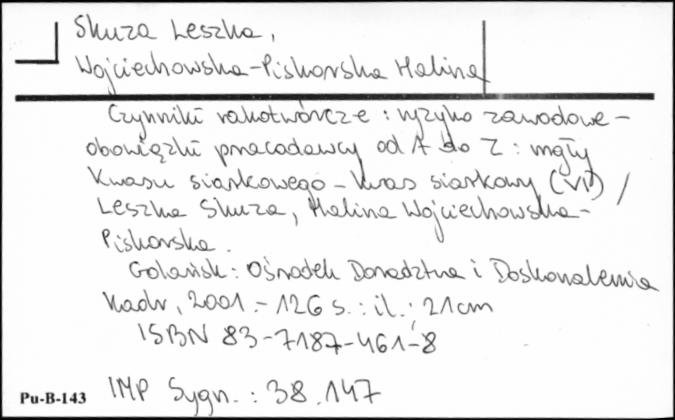 Skuza Leszka,
Wojciechowska-Piskorska Halina
Czynniki rakotwórcze : ryzyko zawodowe -
obowiązki pracodawcy od A do Z : mgły
kwasu siarkowego - kwas siarkowy (VI) /
Leszka Skuza, Halina Wojciechowska-
Piskorska.
Gdańsk : Ośrodek Doradztwa i Doskonalenia
Kadr, 2001. - 126 s. : il. ; 21 cm
ISBN 83-7187-461-8
Pu-B-143 IMP Sygn. : 38.147